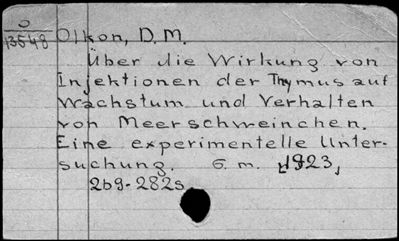 O
13548
Olkon, D. M.
Über die Wirkung von
Injektionen der Thymus auf
Wachstum und Verhalten
von Meerschweinchen.
Eine experimentelle Unter-
suchung. 6. m. [1923]
269-282s